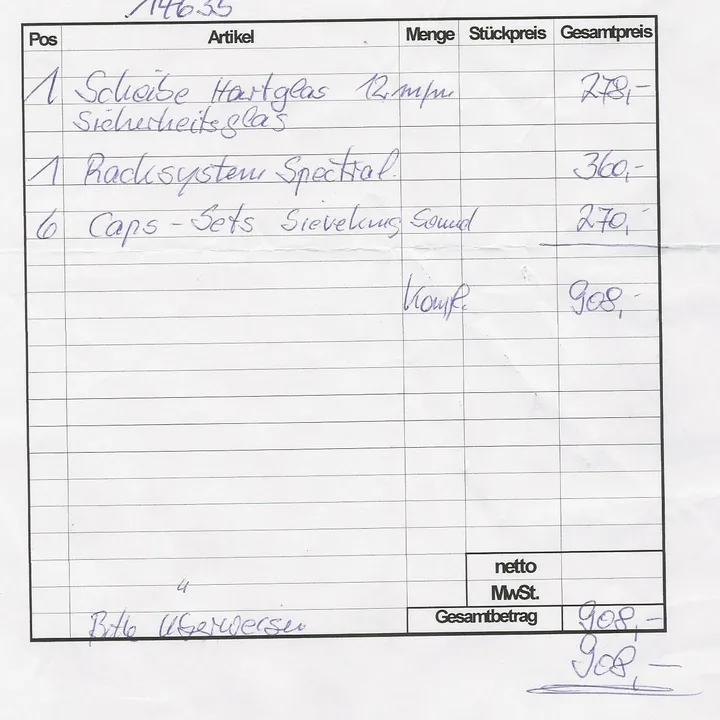 14635
Pos Artikel Menge Stückpreis Gesamtpreis
1 Scheibe Hartglas 12 mm 278,-
Sicherheitsglas
1 Racksystem Spectral. 360,-
6 Caps-Sets Sieveking Sound 270,-
Kompl. 908,-
netto
MwSt.
Bitte Überweisen Gesamtbetrag 908,-
908,-